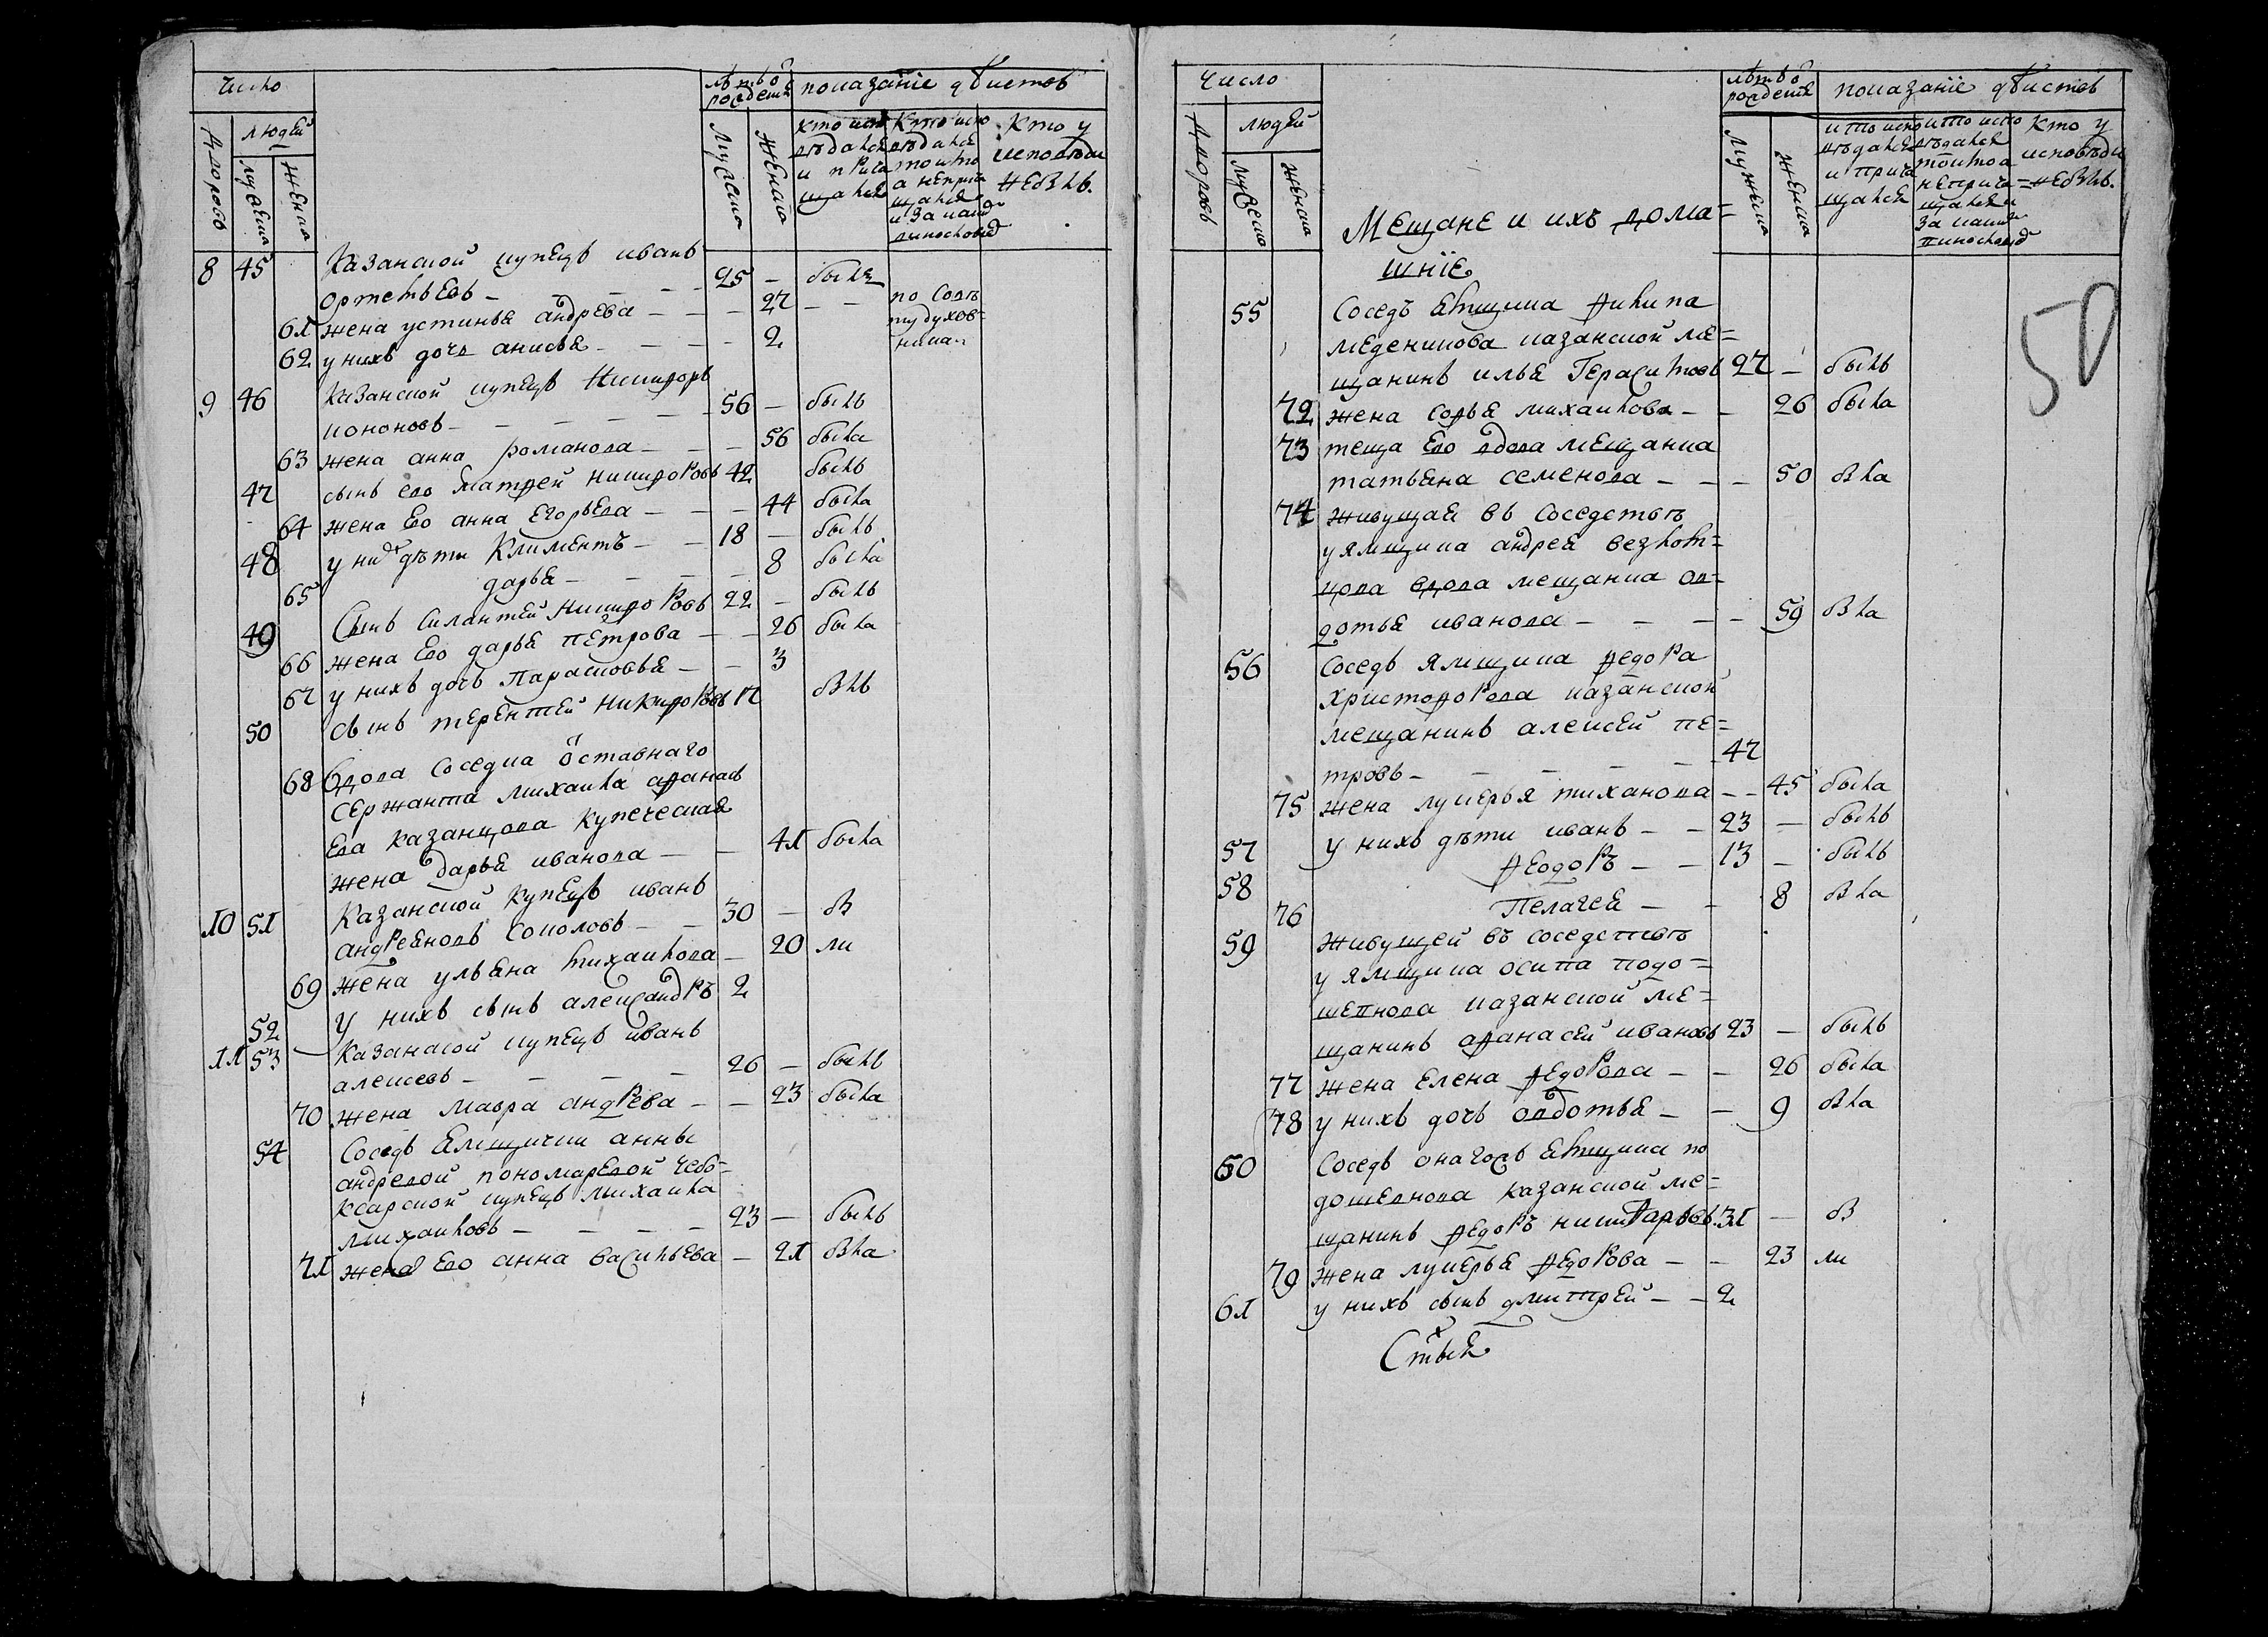 число
людей
дворовъ
мужеска
женска
лѣтъ ѿ рождениѧ
мужеска
женска
показанїе дѣиствъ
кто испо
вѣдалсѧ
и прича
щалсѧ
кто испо
вѣдалсѧ
токмо
а непри
щалсѧ
и за каки
виносло
кто у
исповѣди
небылъ.
8 45 Казанской купецъ иванъ
ортемьевъ - 25 - былъ
61 жена устинья андрева - 27 -
по совѣ
ту духов=
ника
62 у нихъ дочь анисья - 2
9 46 Казанской купецъ Никифоръ
кононовъ - 56 - былъ
63 жена анна романова - 56 была
47 сынъ его матфей никифоровъ 42 былъ
64 жена его анна егорьева - 44 была
48 у них дѣти Климентъ - 18 - былъ
65 дарья - 8 была
49 Сынъ силантей никифоровъ 22 - былъ
66 жена его дарья петрова - 26 была
67 у нихъ дочь парасковья - 3
50 сынъ терентей никифоровъ 17 былъ
68 вдова соседка ѿставнаго
сержанта михаила афанась
ева казанцова купеческая
жена дарья иванова - 41 была
10 51 Казанской купецъ иванъ
андреяновъ соколовъ - 30 - бы
69 жена ульяна михаилова - 20 ли
52 У нихъ сынъ александръ 2
11 53 Казанской купецъ иванъ
алексевъ - 26 - былъ
70 жена мавра андрева - 23 была
54 Соседъ ямщички анны
андревой пономаревой чебо=
ксарской купецъ михаила
михаиловъ - 23 - былъ
71 жена его анна васильева - 21 была
число
людей
дворовъ
мужеска
женска
лѣтъ ѿ рождениѧ
мужеска
женска
показанїе дѣиствъ
кто испо
вѣдалсѧ
и прича
щалсѧ
кто испо
вѣдалсѧ
токмо а
неприча=
щалсѧ и
за каки
виносло
кто у
исповѣди
небылъ.
50
Мещане и ихъ дома=
шнїе
55 Соседъ ямщика филипа
меденикова казанской ме=
щанинъ илья Герасимовъ 27 - былъ
72 жена софья михаилова - 26 была
73 теща его вдова мещанка
татьяна семенова - 50 была
74 живущая въ соседствѣ
у ямщика андрея
вдова мещанка ов=
дотья иванова - 59 была
56 Соседъ ямщика федора
христофорова казанской
мещанинъ алексей пе=
тровъ - 47
75 жена лукерья тиханова - 45 была
57 У нихъ дѣти иванъ - 23 - былъ
58 феодоръ - 13 - былъ
76 Пелагея - 8 была
59 живущей въ соседствѣ
у ямщика осипа подо=
шевнова казанской ме=
щанинъ афанасей ивановъ 23 - былъ
77 жена елена федорова - 26 была
78 у нихъ дочь овдотья - 9 была
60 Соседъ онагожъ ямщика по
дошевнова казанской ме=
щанинъ федоръ никифоровъ 31 - бы
79 жена лукерья федорова - 23 ли
61 у нихъ сынъ дмитрей - 2